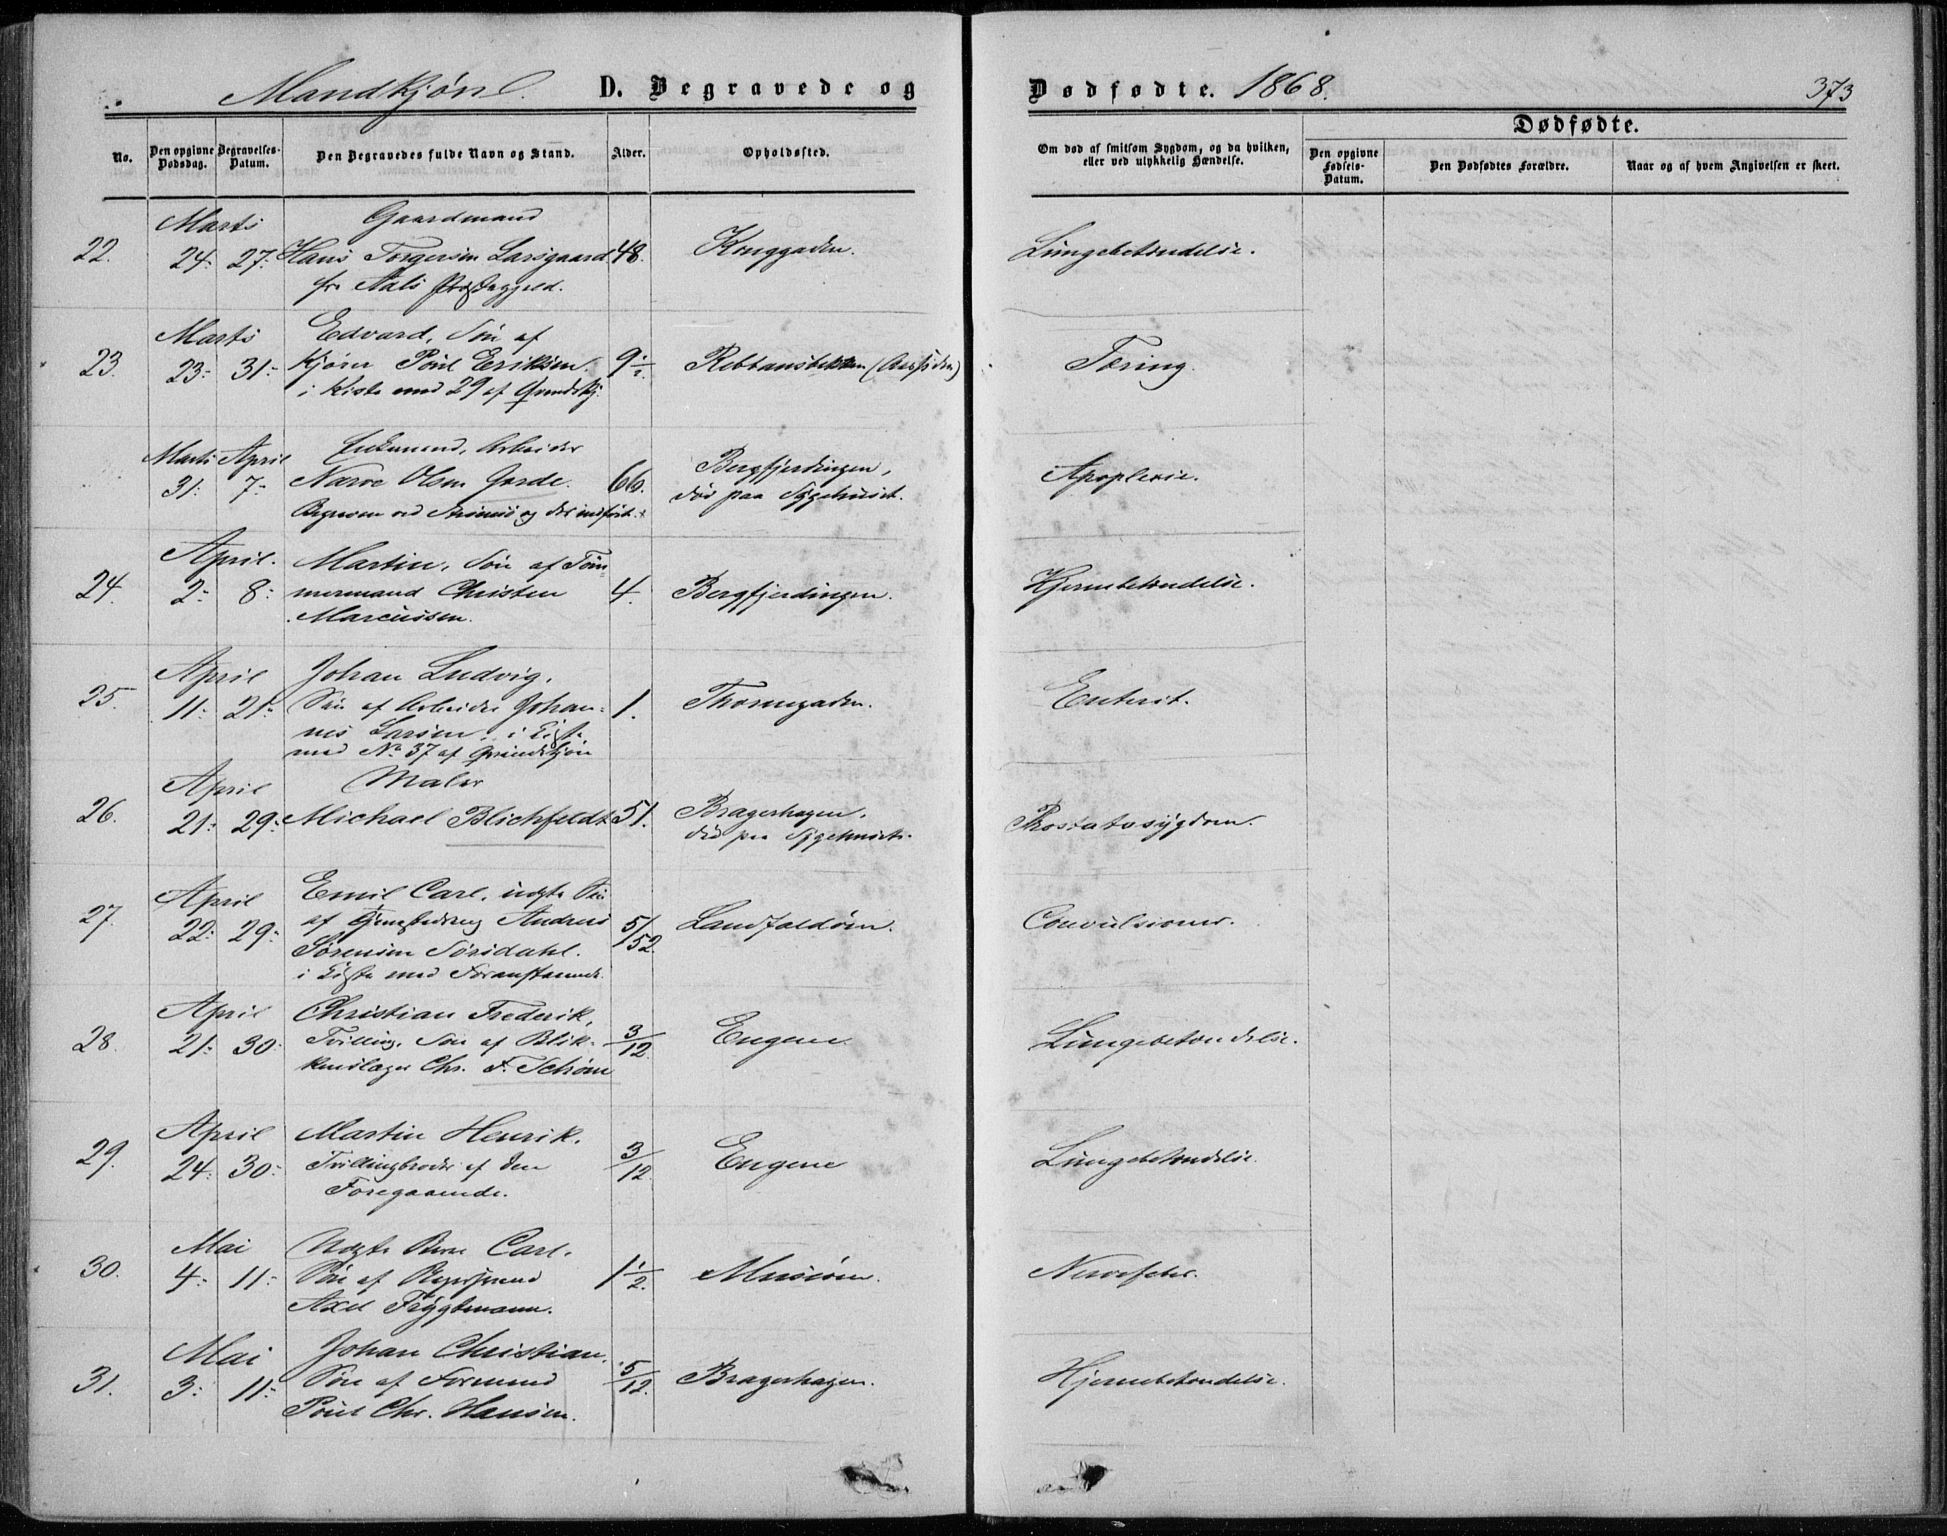 Mandkjøn. D. Begravede og
Dødfødte. 1868.
373
No.
Den opgivne Dødsdag.
Begravelses-Datum.
Den Begravedes fulde Navn og Stand.
Alder.
Opholdssted.
Om død af smitsom Sygdom, og da hvilken,
eller ved ulykkelig Hændelse.
Dødfødte.
Den opgivne Fødsels-Datum.
Den Dødfødtes Forældre.
Naar og af hvem Angivelsen er skeet.
Marts Gaardmand
22. 24: 27: Hans Torgersen Larsgaard 48. Konggaden. Lungebetændelse.
fr Aals Præstegjeld.
Marts Edvard, Søn af
23. 23: 31: Kjører Poul Eriksen. 9½. Rebbansbakken Tæring.
i Kiste med 29 af Qvindekj.
Marts April Enkemand, Arbeider
31: 7: Narve Olsen Gorde. 66. Bergfjerdingen, Apoplexie.
død paa Sygehuset.
April. Martin, Søn af Tøm-
24. 2: 8: mermand Christen 4. Bergfjerdingen. Hjernebetændelse.
Marcussen.
April Johan Ludvig,
25. 11: 21: Søn af Arbeider Johan- 1. Thornegaden. Enterit.
nes Larsen. i Kiste
med No 37 af Qvindekjøn
April Maler
26. 21: 29: Michael Blichfeldt 51. Bragerhagen, Prostatasygdom.
død paa Sygehuset.
April Emil Carl, uægte Søn
27. 22: 29: af Andreas 5/52. Landfaldøen. Convulsioner.
Sørensen Sørsdahl.
i Kiste med Foranstaaende.
April Christian Frederik,
28. 21: 30: Tvilling, Søn af Blik- 3/12. Engene Lungebetændelse.
kenslager Chr. F. Schrøm
April Martin Henrik,
29. 24: 30: Tvillingbroder af den 3/12. Engene Lungebetændelse.
Foregaaende.
Mai Uægte Barn Carl,
30. 4: 11: Søn af 1½. Muusøen. Nervefeber.
Axel Frygtmann.
Mai Johan Christian,
31. 3: 11: Søn af Formand 5/12. Bragerhagen. Hjernebetændelse.
Poul Chr. Hansen.